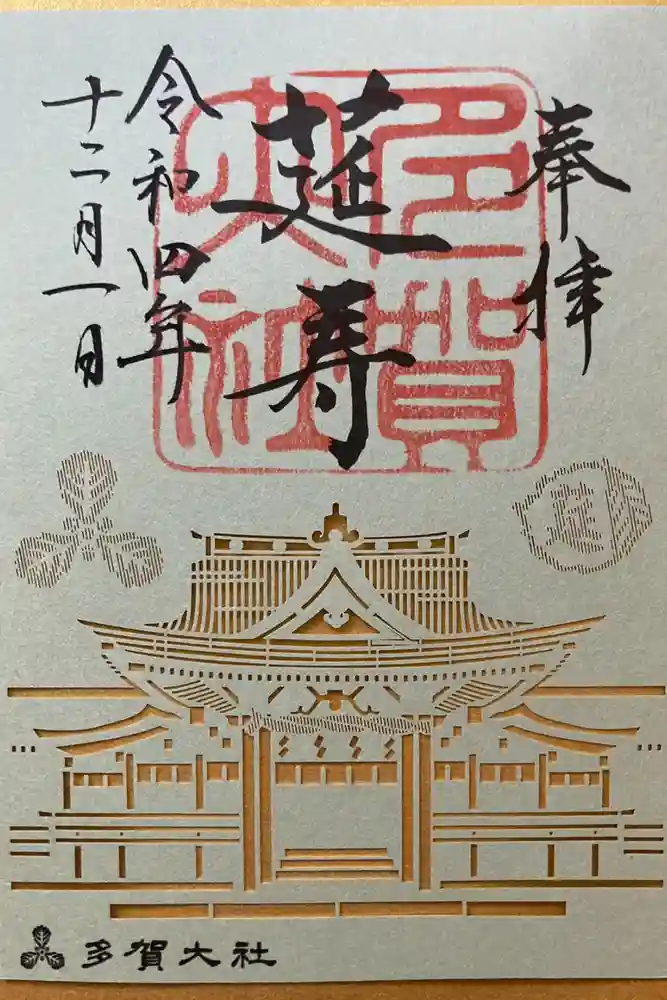 奉拝
莚寿
令和四年
十二月一日
多賀大社
莚
多賀大社